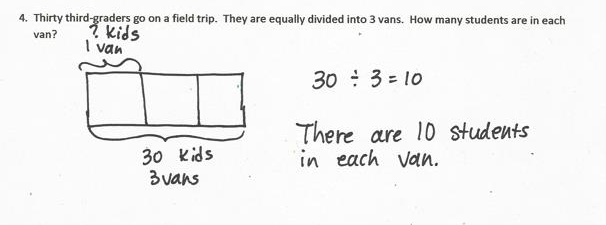 4. Thirty third-graders go on a field trip. They are equally divided into 3 vans. How many students are in each
van?
? kids
1 van
30 ÷ 3 = 10
There are 10 students
in each van.
30 kids
3 vans